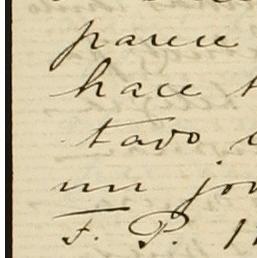 parece
hace
tado
un jov
F. P.